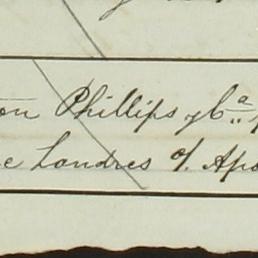 on Phillips y Cª
e Londres o/. Apo